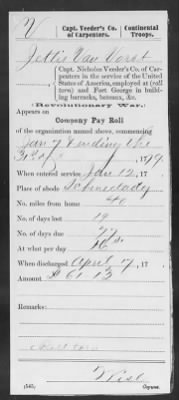 V | Capt. Veeder's Co. of Carpenters. | Continental Troops.
Jettis Van Vorst
Capt. Nicholas Veeder's Co. of Carpenters
in the service of the United
States of America, employed at (roll
torn) and Fort George in building
barracks, bateaux, &c.
(Revolutionary War.)
Appears on
Company Pay Roll
of the organization named above, commencing
Jan 7 & ending the
31st of 1779.
When entered service Jan 12, 17
Place of abode Schenectady
No. miles from home 40
No. of days lost 19
No. of days due 77
At what per day 16s.
When discharged April 7, 17
Amount £ 61.12
Remarks:
Roll torn
(545) Copyist.